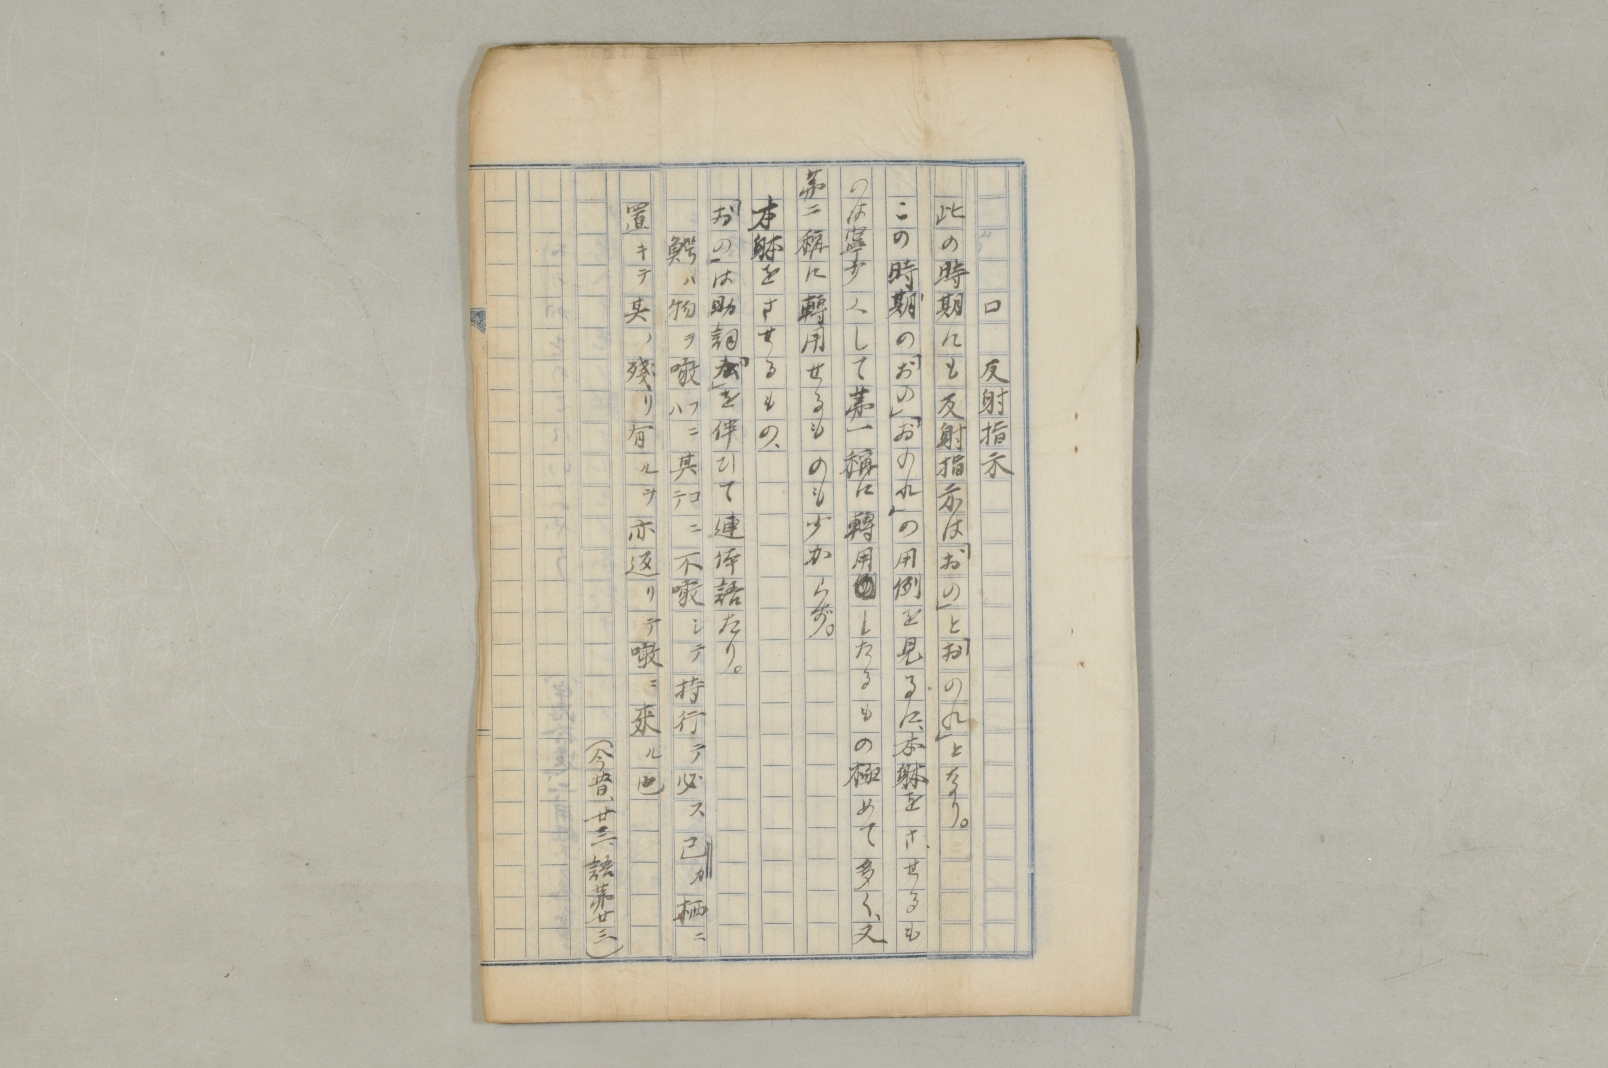 ロ 反射指示
此の時期にも反射指示は「おの」と「おのれ」となり。
この時期の「おの」「おのれ」の用例を見るに、本躰をさせるも
のは寧少くして第一稱に轉用したるもの極めて多く、又
第二稱に轉用せるものも少からず。
本躰をさせるもの、
「おの」は助詞「が」を伴ひて連体語たり。
鰐ハ物ヲ噉フニハ其コニテ不噉シテ持行テ必ス己カ栖ニ
置キテ其ノ殘リ有ルヲ亦返リテ噉ニ來ル也
(今昔、廿三、語第廿三)